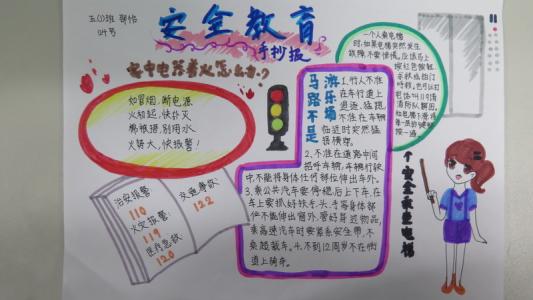 五(1)班
04号
安全教育
手抄报
家中电器着火怎么办?
如冒烟,断电源
火初起,快扑灭
用水
火势大,快报警!
治安报警:
110
火灾报警:
119
医疗急救:
120
交通事故:
122
马路不是
游乐场
1.行人不准
在车行道上
追逐、猛跑,
不准在车辆
临近时突然猛
拐横穿。
2.不准在道路中间
招呼车辆,车辆行驶
中,不能将身体任何部位伸出车外。
3.乘公共汽车要停稳后上下车,在
车上要抓好扶手,头、手等身体部
位不能伸出窗外,
乘高速汽车时要系安全带,不
乘超载车。4.不到12周岁不在街
道上骑车。
一个人乘电梯
时,如果电梯突然发生
故障,不要惊慌,应该马上
个人安全乘坐电梯